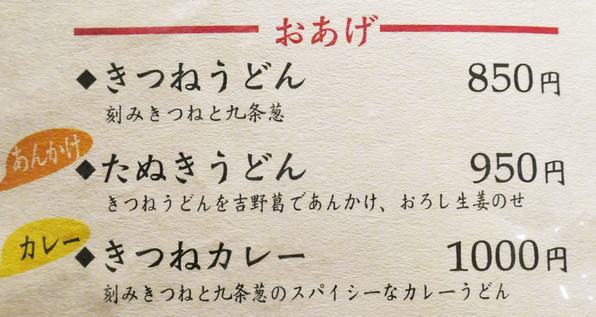 おあげ
◆きつねうどん 850円
刻みきつねと九条葱
あんかけ
◆たぬきうどん 950円
きつねうどんを吉野葛であんかけ、おろし生姜のせ
カレー
◆きつねカレー 1000円
刻みきつねと九条葱のスパイシーなカレーうどん